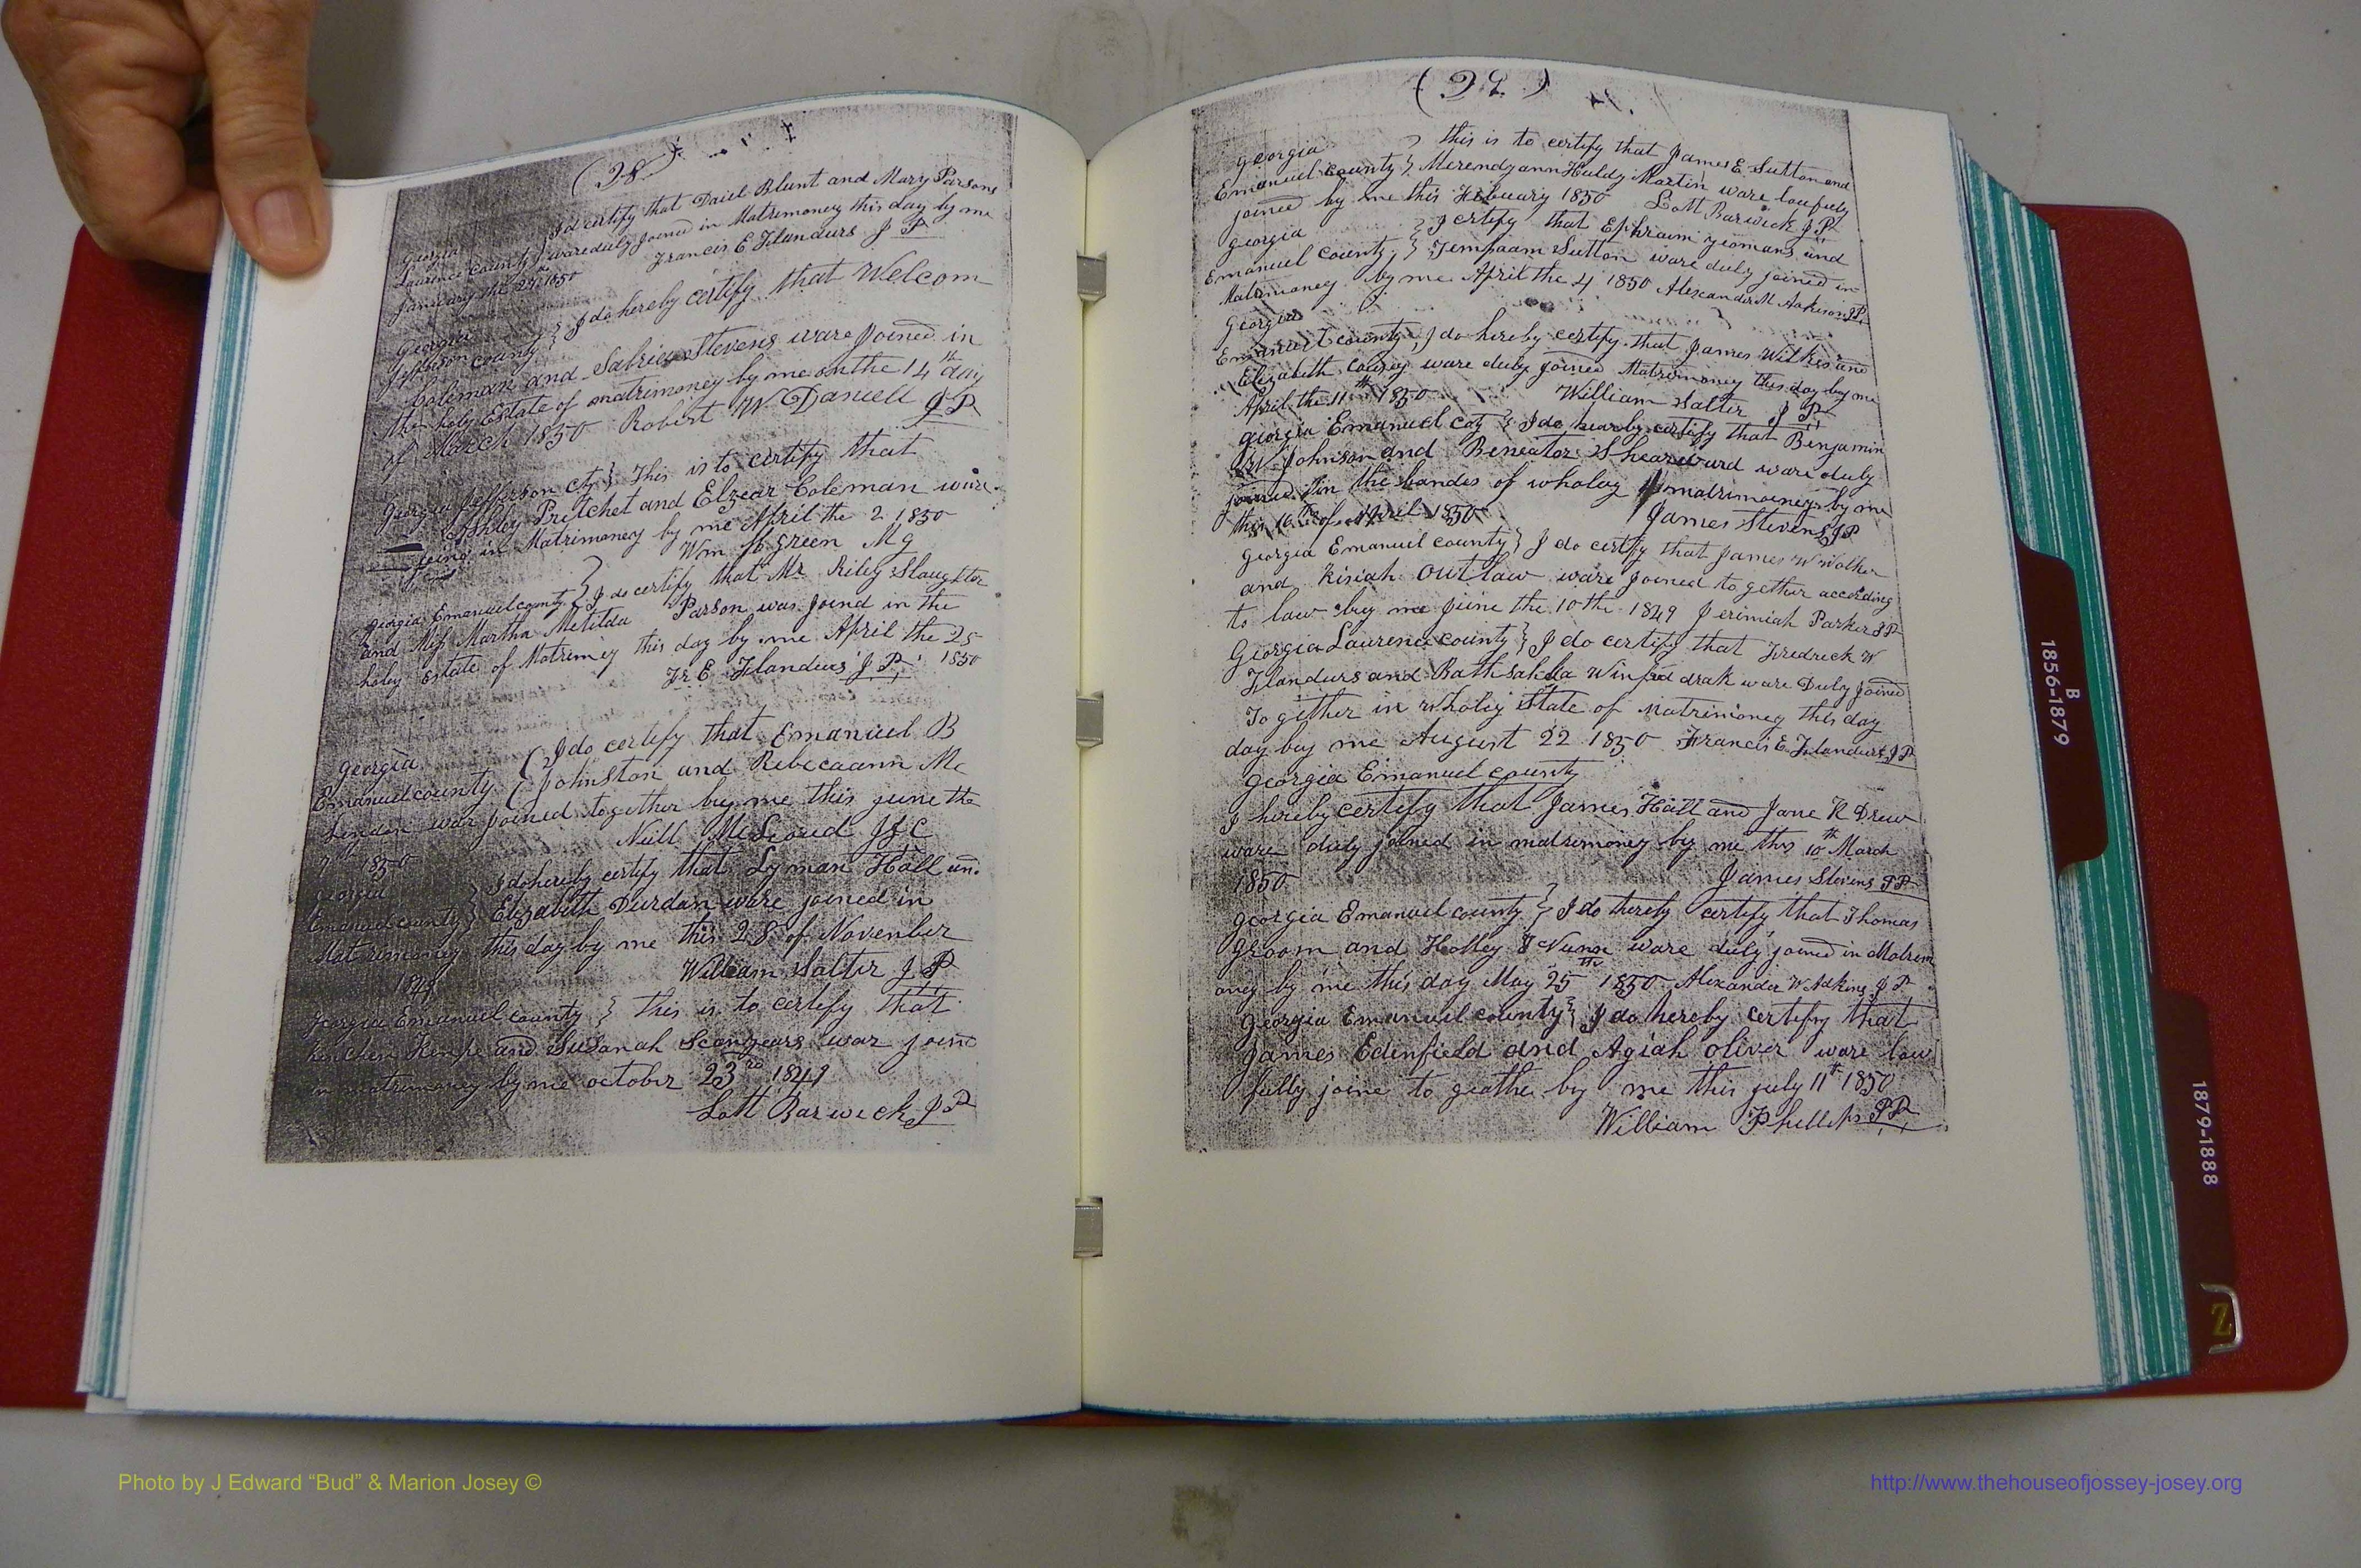 (28)
I d certify that Daiel Blunt and Mary Parsons
Georgia
Laurence County } ware duly joined in Matrimoney this day by me
January the 24th 1850 Francis E Flandurs J P
Georgia
Jefferson county } I do hereby certify that Welcom
Coleman and Stevens ware Joined in
the holy Estate of matrimoney by me on the 14th day
of March 1850 Robert W Daniell J P
Georgia Jefferson Cty } This is to certify that
Ashley Pritchet and Elzear Coleman ware
joind in Matrimoney by me April the 2 1850
Wm Green Mg
Georgia Emanuel county } I do certify that Mr Riley Slaughter
and Miss Martha Metilda Parson was joind in the
holey Estate of Matrimey this day by me April the 25
Fr E Flandurs J P 1850
Georgia
Emanuel county { I do certify that Emanuel B
Johnston and Rebecaann Mc
Lendon war joined together bey me this june the
7th 1850 Neill McLeoud J I C
Georgia
Emanuel county } I do hereby certify that Lyman Hall an
Elizabeth Durdan ware joined in
Matrimoney this day by me this 28 of November
1849 William Salter J P
Georgia Emanuel county } this is to certify that
Kempe and Susanah Scongears war joind
in matrimoney by me october 23rd 1849
Lott Barwick J P
(29)
Georgia } this is to certify that James E. Sutton and
Emanuel County } Merendyann Huldy Martin ware loufuly
joined by me this Febuary 1850 Lott Barwick J P
Georgia } I certify that Ephraim yeomans and
Emanuel County } Tempaam Sutton ware duly joined in
Matrimoney by me April the 4 1850 Alexander M Aakison J P
Georgia
Emanuel county } I do hereby certify that James Wilkes and
Elizabeth ware duly joined Matrimoney this day by me
April the 11th 1850 William Salter J P
georgia Emanuel coty } I do hearby certify that Benjamin
W Johnson and Beneator Shearwurd ware duly
joined in the bandes of wholey matrimoeney by me
this 16th of April 1850 James Stevens J P
Georgia Emanuel county } I do certify that James W Walker
and Kisiah Outlaw ware joined to gether according
to law by me june the 10 the 1849 Jerimiah Parker J P
Georgia Laurence county } I do certify that Fredreck W
Flandurs and Bathsahba Winfred drak ware Duly joined
To gether in wholy state of matrimoney this day
day bey me August 22 1850 Francis E Flandurs J P
Georgia Emanuel county
I hereby certify that James Hall and Jane K Drew
ware duly joined in matrimoney by me this 10th March
1850 James Stevens J P
Georgia Emanuel county } I do thereby certify that Thomas
Groom and Holley J Nunn ware duly joined in Motrem
oney by me this day May 25th 1850 Alexander W Adkins J P
Georgia Emanuel county } I do hereby certify that
James Edinfield and Agiah oliver ware law
fully joine to geathe by me this july 11th 1850
William Phillips J P
B
1856-1879
1879-1888
Z
Photo by J Edward “Bud” & Marion Josey ©
http://www.thehouseofjossey-josey.org